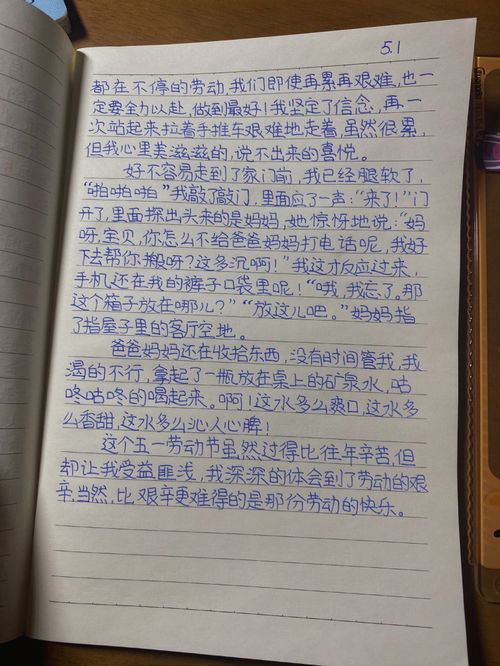 5.1
都在不停的劳动，我们即使再累再艰难，也一
定要全力以赴，做到最好！我坚定了信念，再一
次站起来拉着手推车艰难地走着，虽然很累，
但我心里美滋滋的，说不出来的喜悦。
好不容易走到了家门前，我已经腿软了，
“啪啪啪”我敲了敲门，里面应了一声：“来了！”门
开了，里面探出头来的是妈妈，她惊讶地说：“妈
呀，宝贝，你怎么不给爸爸妈妈打电话呢，我好
下去帮你搬呀？这多沉啊！”我这才反应过来，
手机还在我的裤子口袋里呢！“哦，我忘了。那
这个箱子放在哪儿？”“放这儿吧。”妈妈指
了指屋子里的客厅空地。
爸爸妈妈还在收拾东西，没有时间管我，我
渴的不行，拿起了一瓶放在桌上的矿泉水，咕
咚咕咚的喝起来。啊！这水多么爽口，这水多
么香甜，这水多么沁人心脾！
这个五一劳动节虽然过得比往年辛苦，但
却让我受益匪浅，我深深的体会到了劳动的艰
辛，当然，比艰辛更难得的是那份劳动的快乐。